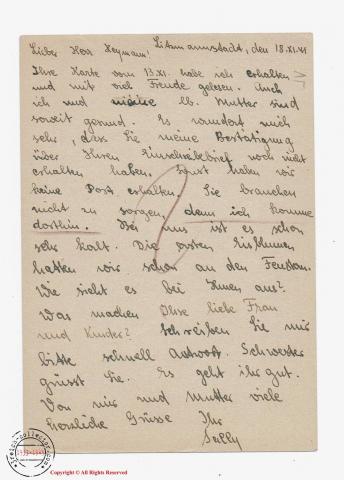 Litzmannstadt, den 18.XI.41
Lieber Herr Heymann!
Ihre Karte vom 13.XI. habe ich erhalten
und mit viel Freude gelesen. Auch
ich und meine lb. Mutter sind
soweit gesund. Es wundert mich
sehr, dass Sie meine Bestätigung
über Ihren Einschreibebrief noch nicht
erhalten haben. Sonst haben wir
keine Post erhalten. Sie brauchen
nicht zu sorgen, denn ich komme
dorthin. Bei uns ist es schon
sehr kalt. Die ersten Eisblumen
hatten wir schon an den Fenstern.
Wie sieht es bei Ihnen aus?
Was machen Ihre liebe Frau
und Kinder? Schreiben Sie mir
bitte schnell Antwort. Schwester
grüsst Sie. Es geht ihr gut.
Von mir und Mutter viele
herzliche Grüsse Ihr
Sally
Copyright © All Rights Reserved